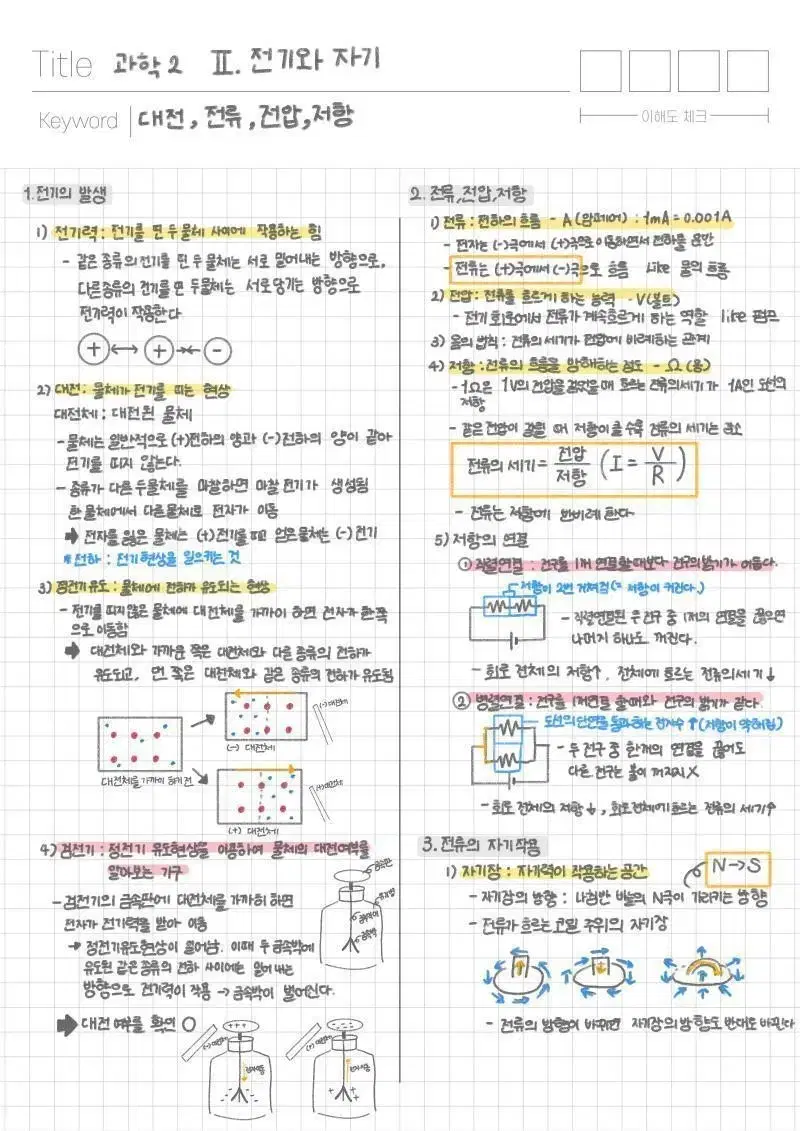 Title 과학2 Ⅱ. 전기와 자기
Keyword 대전, 전류, 전압, 저항
이해도 체크
1. 전기의 발생
1) 전기력 : 전기를 띤 두 물체 사이에 작용하는 힘
- 같은 종류의 전기를 띤 두 물체는 서로 밀어내는 방향으로,
다른종류의 전기를 띤 두물체는 서로 당기는 방향으로
전기력이 작용한다
+ + -
2) 대전 : 물체가 전기를 띠는 현상
대전체 : 대전된 물체
- 물체는 일반적으로 (+)전하의 양과 (-)전하의 양이 같아
전기를 띠지 않는다.
- 종류가 다른 두물체를 마찰하면 마찰 전기가 생성됨
한 물체에서 다른물체로 전자가 이동
➡ 전자를 잃은 물체는 (+)전기를 띠고 얻은물체는 (-)전기
* 전하 : 전기현상을 일으키는 것
3) 정전기 유도 : 물체에 전하가 유도되는 현상
- 전기를 띠지않은 물체에 대전체를 가까이 하면 전자가 한쪽
으로 이동함
➡ 대전체와 가까운 쪽은 대전체와 다른 종류의 전하가
유도되고, 먼 쪽은 대전체와 같은 종류의 전하가 유도됨
(-)대전체
(-) 대전체
대전체를 가까이 하기 전
(+)대전체
(+) 대전체
4) 검전기 : 정전기 유도현상을 이용하여 물체의 대전여부를
알아보는 기구
금속판
유리병
금속막대
금속박
- 검전기의 금속판에 대전체를 가까이 하면
전자가 전기력을 받아 이동
→ 정전기유도현상이 일어남. 이때 두 금속박에
유도된 같은 종류의 전하 사이에는 밀어 내는
방향으로 전기력이 작용 → 금속박이 벌어진다.
➡ 대전 여부를 확인 O
(-)대전체 +++ 전자이동
(+)대전체 전자이동
2. 전류, 전압, 저항
1) 전류 : 전하의 흐름 - A (암페어) : 1mA = 0.001A
- 전자는 (-)극에서 (+)극으로 이동하면서 전하를 운반
- 전류는 (+)극에서 (-)극으로 흐름 like 물의 흐름
2) 전압 : 전류를 흐르게 하는 능력 - V(볼트)
- 전기 회로에서 전류가 계속흐르게 하는 역할 like 펌프
3) 옴의 법칙 : 전류의 세기가 전압에 비례하는 관계
4) 저항 : 전류의 흐름을 방해하는 정도 - Ω (옴)
- 1Ω은 1V의 전압을 걸었을 때 흐르는 전류의세기가 1A인 도선의
저항
- 같은 전압이 걸릴 때 저항이 클 수록 전류의 세기는 감소
전류의 세기 = 전압/저항 (I = V/R)
- 전류는 저항에 반비례 한다
5) 저항의 연결
① 직렬연결 : 전구를 1개 연결할 때보다 전구의 밝기가 어둡다.
저항이 2번 거쳐감 (= 저항이 커진다.)
- 직렬연결된 두 전구 중 1개의 연결을 끊으면
나머지 하나도 꺼진다.
- 회로 전체의 저항↑, 전체에 흐르는 전류의세기↓
② 병렬연결 : 전구를 1개연결 할 때와 전구의 밝기가 같다.
도선의 단면을 통과하는 전자수 ↑ (저항이 약해짐)
- 두 전구 중 한개의 연결을 끊어도
다른 전구는 불이 꺼지지 X
- 회로 전체의 저항↓, 회로전체에 흐르는 전류의 세기↑
3. 전류의 자기 작용
1) 자기장 : 자기력이 작용하는 공간
N→S
- 자기장의 방향 : 나침반 바늘의 N극이 가리키는 방향
- 전류가 흐르는 코일 주위의 자기장
- 전류의 방향이 바뀌면 자기장의 방향도 반대로 바뀐다